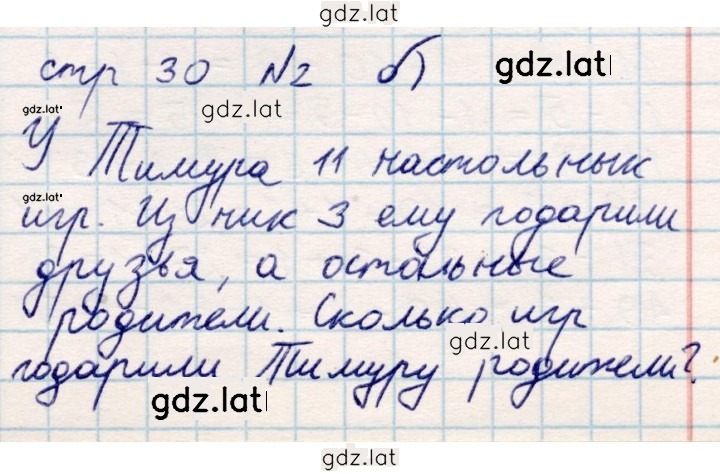 gdz.lat
стр 30 №2 б)
gdz.lat
gdz.lat
gdz.lat
У Тимура 11 настольных
gdz.lat
игр. Из них 3 ему подарили
друзья, а остальные
родители. Сколько игр
gdz.lat
подарили Тимуру родители?
gdz.lat
gdz.lat